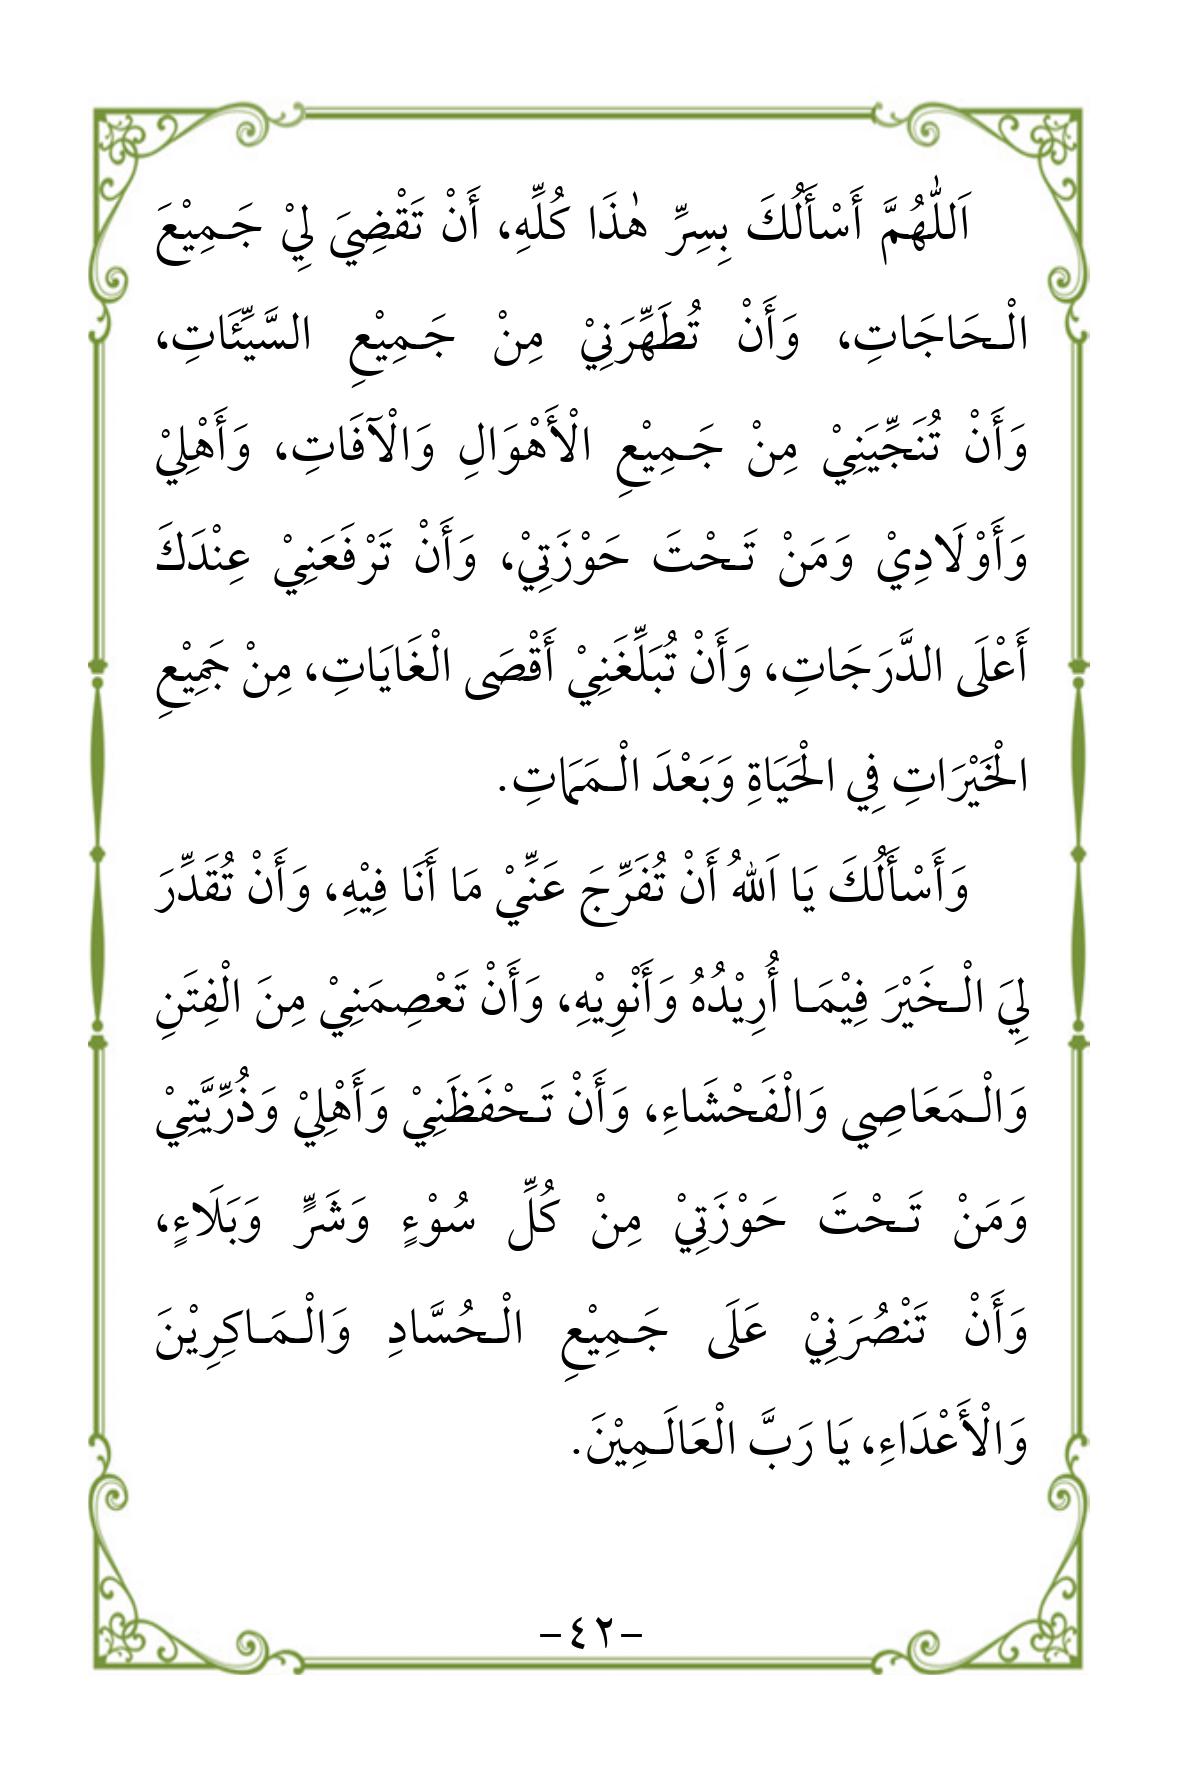 اَللّٰهُمَّ أَسْأَلُكَ بِسِرِّ هٰذَا كُلِّهِ، أَنْ تَقْضِيَ لِيْ جَـمِيْعَ
الْـحَاجَاتِ، وَأَنْ تُطَهِّرَنِيْ مِنْ جَـمِيْعِ السَّيِّئَاتِ،
وَأَنْ تُنَجِّيَنِيْ مِنْ جَـمِيْعِ الْأَهْوَالِ وَالْآفَاتِ، وَأَهْلِيْ
وَأَوْلَادِيْ وَمَنْ تَـحْتَ حَوْزَتِيْ، وَأَنْ تَرْفَعَنِيْ عِنْدَكَ
أَعْلَى الدَّرَجَاتِ، وَأَنْ تُبَلِّغَنِيْ أَقْصَى الْغَايَاتِ، مِنْ جَمِيْعِ
الْخَيْرَاتِ فِي الْحَيَاةِ وَبَعْدَ الْـمَمَاتِ.
وَأَسْأَلُكَ يَا اَللهُ أَنْ تُفَرِّجَ عَنِّيْ مَا أَنَا فِيْهِ، وَأَنْ تُقَدِّرَ
لِيَ الْـخَيْرَ فِيْمَـا أُرِيْدُهُ وَأَنْوِيْهِ، وَأَنْ تَعْصِمَنِيْ مِنَ الْفِتَنِ
وَالْـمَعَاصِي وَالْفَحْشَاءِ، وَأَنْ تَـحْفَظَنِيْ وَأَهْلِيْ وَذُرِّيَّتِيْ
وَمَنْ تَـحْتَ حَوْزَتِيْ مِنْ كُلِّ سُوْءٍ وَشَرٍّ وَبَلَاءٍ،
وَأَنْ تَنْصُرَنِيْ عَلَى جَـمِيْعِ الْـحُسَّادِ وَالْـمَـاكِرِيْنَ
وَالْأَعْدَاءِ، يَا رَبَّ الْعَالَـمِيْنَ.
-٤٢-